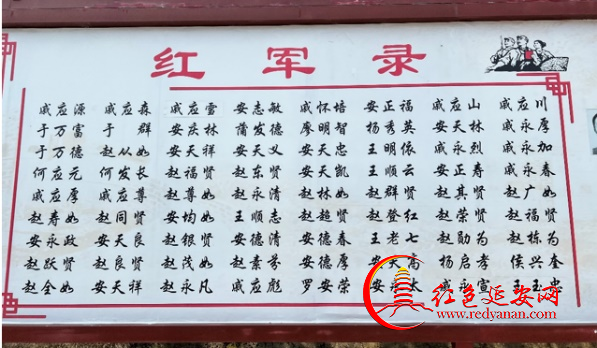 红军录
戚应源 戚应森 戚应雪 安志敏 戚怀培 安正福 戚应山 戚应川
于万富 于群 安庆林 蒲发德 廖明智 杨秀英 安天林 戚永厚
于万德 赵从如 安天祥 安天义 安天忠 王明依 戚永烈 戚永加
何应元 何发长 赵福贤 赵东贤 安天凯 王顺云 安正寿 戚永春
戚应厚 戚应尊 赵尊如 赵永清 赵林如 赵群贤 赵其贤 赵广如
赵寿如 赵同贤 安均如 王顺志 赵超贤 赵登红 赵荣贤 赵福贤
安永政 安天良 赵银贤 安德清 安德春 王老七 赵勋为 赵栋为
赵跃贤 赵良贤 赵茂如 赵素芬 安德厚 安天高 杨启孝 侯兴奎
赵全如 安天祥 赵永凡 戚应彪 罗安荣 安 太 戚永宣 王玉忠
红色延安网
www.redyanan.com